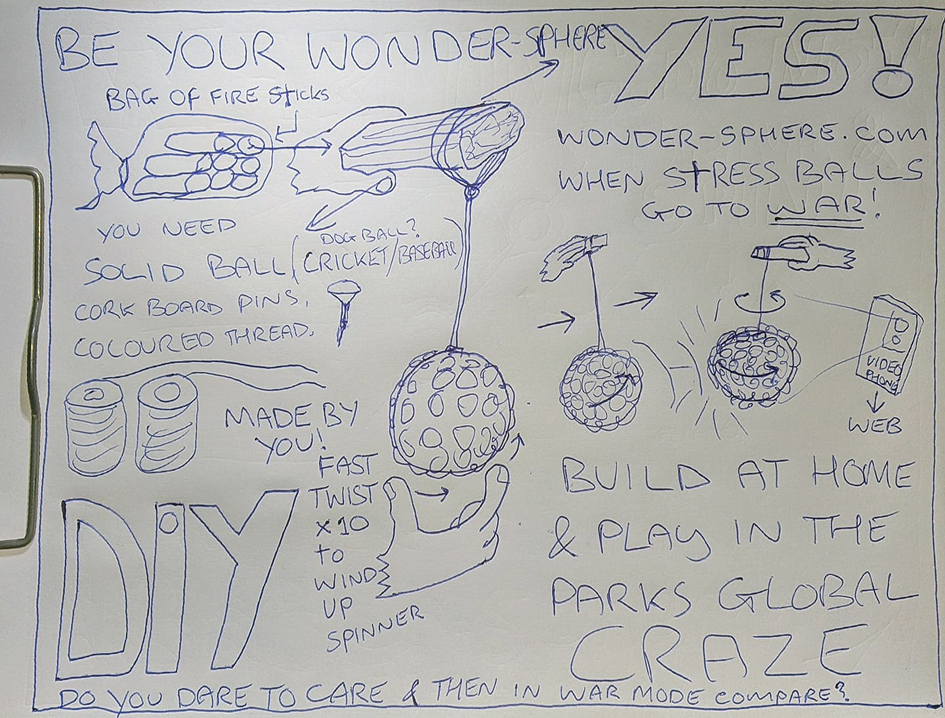 BE YOUR WONDER-SPHERE YES!
BAG OF FIRE STICKS
WONDER-SPHERE.COM
WHEN STRESS BALLS
GO TO WAR!
YOU NEED
SOLID BALL (DOG BALL?
CRICKET/BASEBALL)
CORK BOARD PINS,
COLOURED THREAD.
VIDEO
PHONE
WEB
MADE BY
YOU!
FAST
TWIST
X10
TO
WIND
UP
SPINNER
DIY
BUILD AT HOME
& PLAY IN THE
PARKS GLOBAL
CRAZE
DO YOU DARE TO CARE & THEN IN WAR MODE COMPARE?